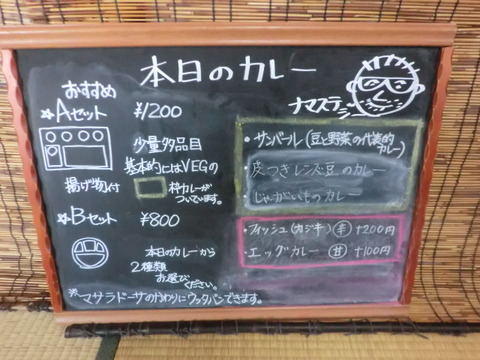 本日のカレー
おすすめ
☆Aセット ¥1200
少量多品目
基本的にはVEGの
枠カレーが
ついています。
揚げ物付
☆Bセット ¥800
本日のカレーから
2種類
お選び
ください。
※マサラドーサのかわりにウッタパンできます。
ナマステ
・サンバール(豆と野菜の代表的
カレー)
・皮つきレンズ豆のカレー
・じゃがいものカレー
・フィッシュ(カジキ)辛+200円
・エッグカレー 甘+100円